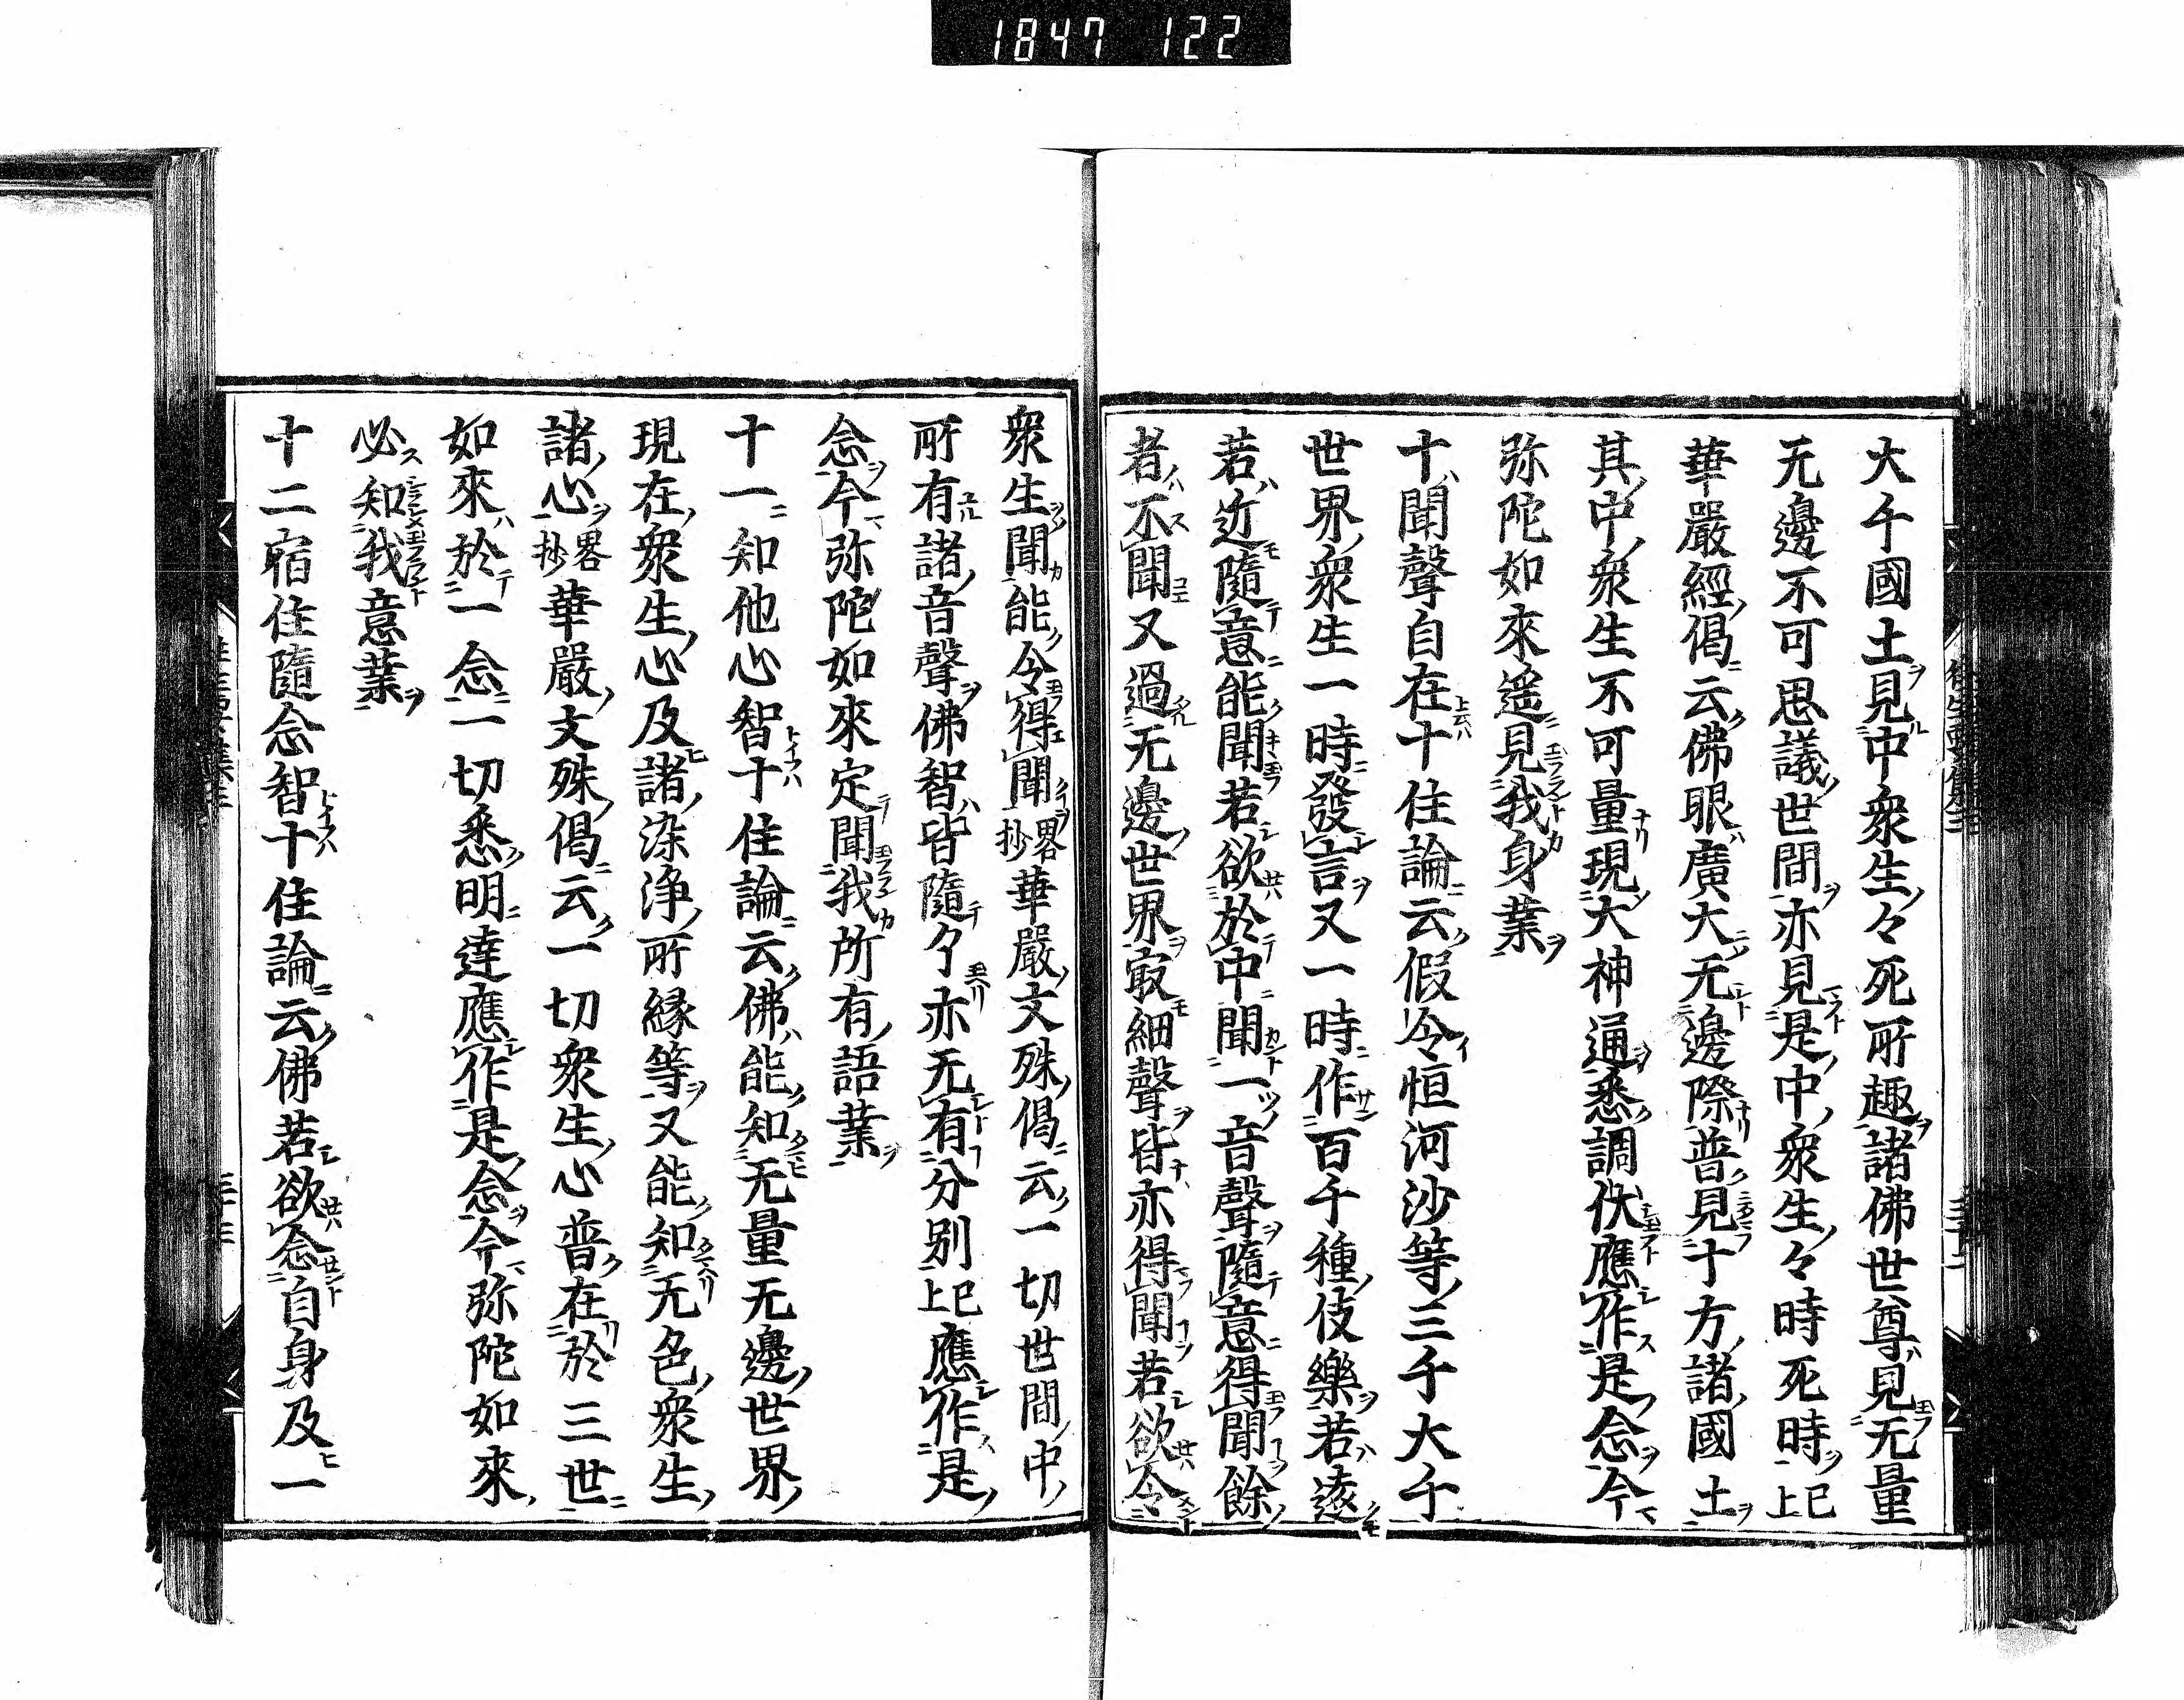 1847 122
大千國土見中衆生々死所趣諸佛世尊見无量
无邊不可思議世間亦見是中衆生々時死時已上
華嚴經偈云佛眼廣大无邊際普見十方諸國土
其中衆生不可量現大神通悉調伏應作是念今
弥陀如來遥見我身業
十聞聲自在十住論云假令恒河沙等三千大千
世界衆生一時發言又一時作百千種伎樂若遠
若近隨意能聞若欲於中聞一音聲隨意得聞餘
者不聞又過无邊世界㝡細聲皆亦得聞若欲令
衆生聞能令得聞略抄華嚴文殊偈云一切世間中
所有諸音聲佛智皆隨了亦无有分別已上應作是
念今弥陀如來定聞我所有語業
十一知他心智十住論云佛能知无量无邊世界
現在衆生心及諸染浄所縁等又能知无色衆生
諸心略抄華嚴文殊偈云一切衆生心普在於三世
如來於一念一切悉明達應作是念今弥陀如來
必知我意業
十二宿住隨念智十住論云佛若欲念自身及一